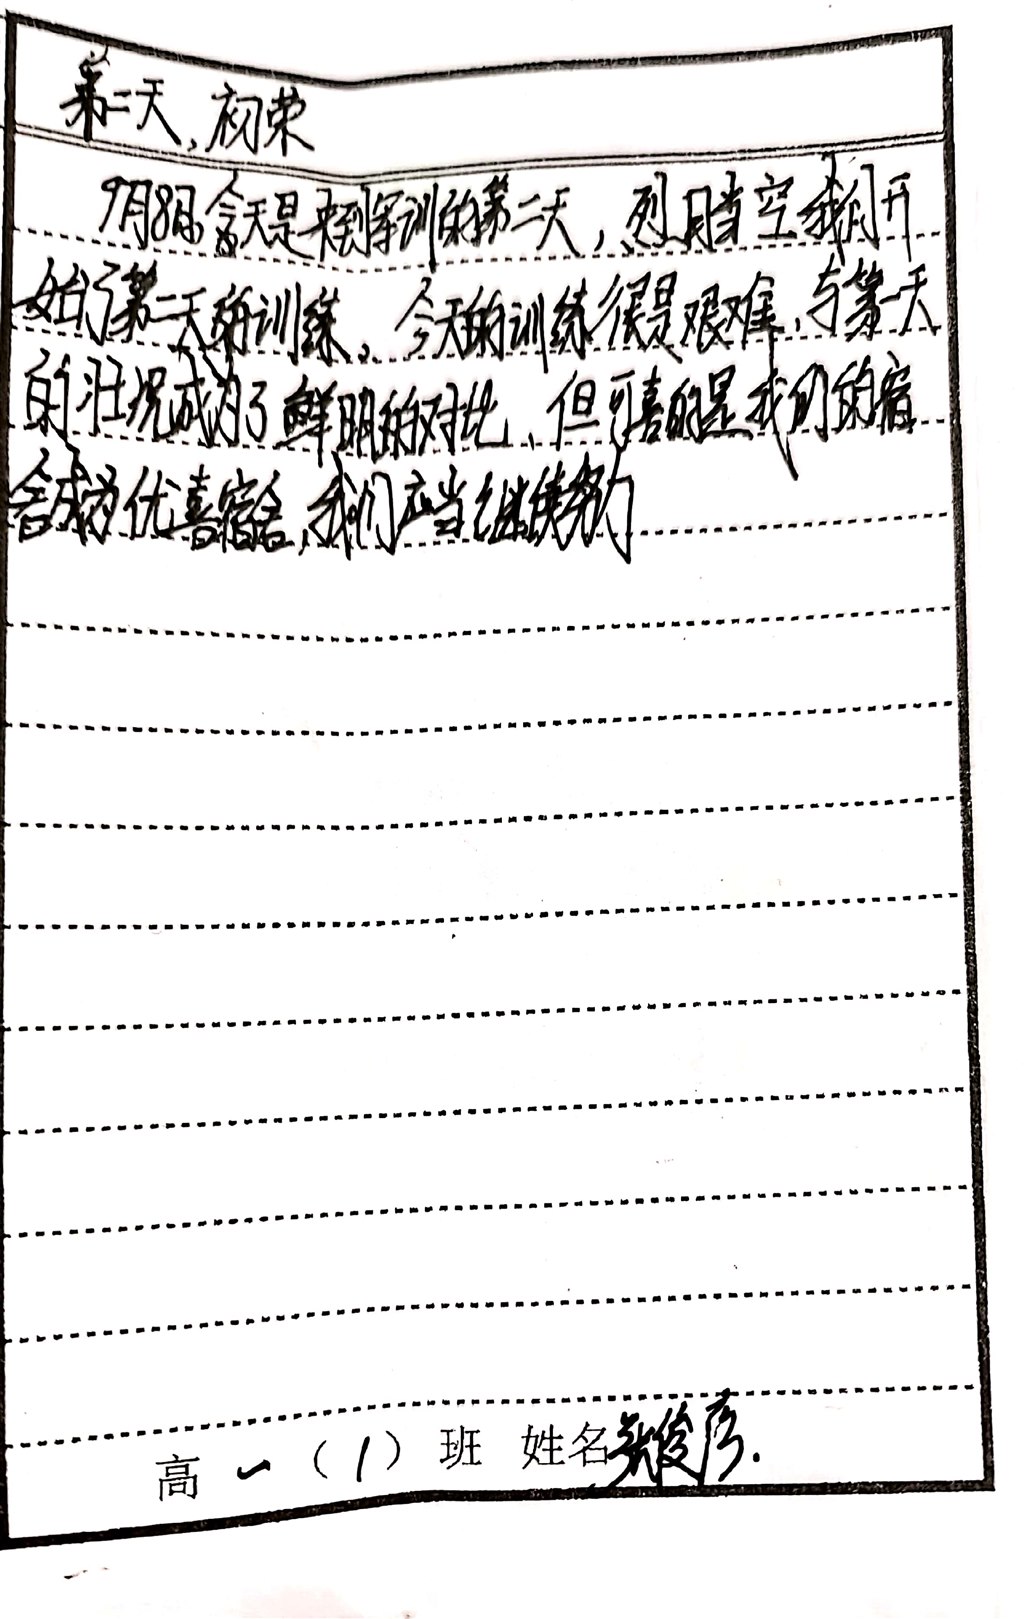 第二天,初荣
9月8日今天是来到军训的第二天,烈日当空我们开
始了第二天的训练。今天的训练很是艰难,与第一天
的壮况成为了鲜明的对比、但可喜的是我们的宿
舍成为优喜宿舍,我们应当继续努力
高一(1)班 姓名张俊彦.